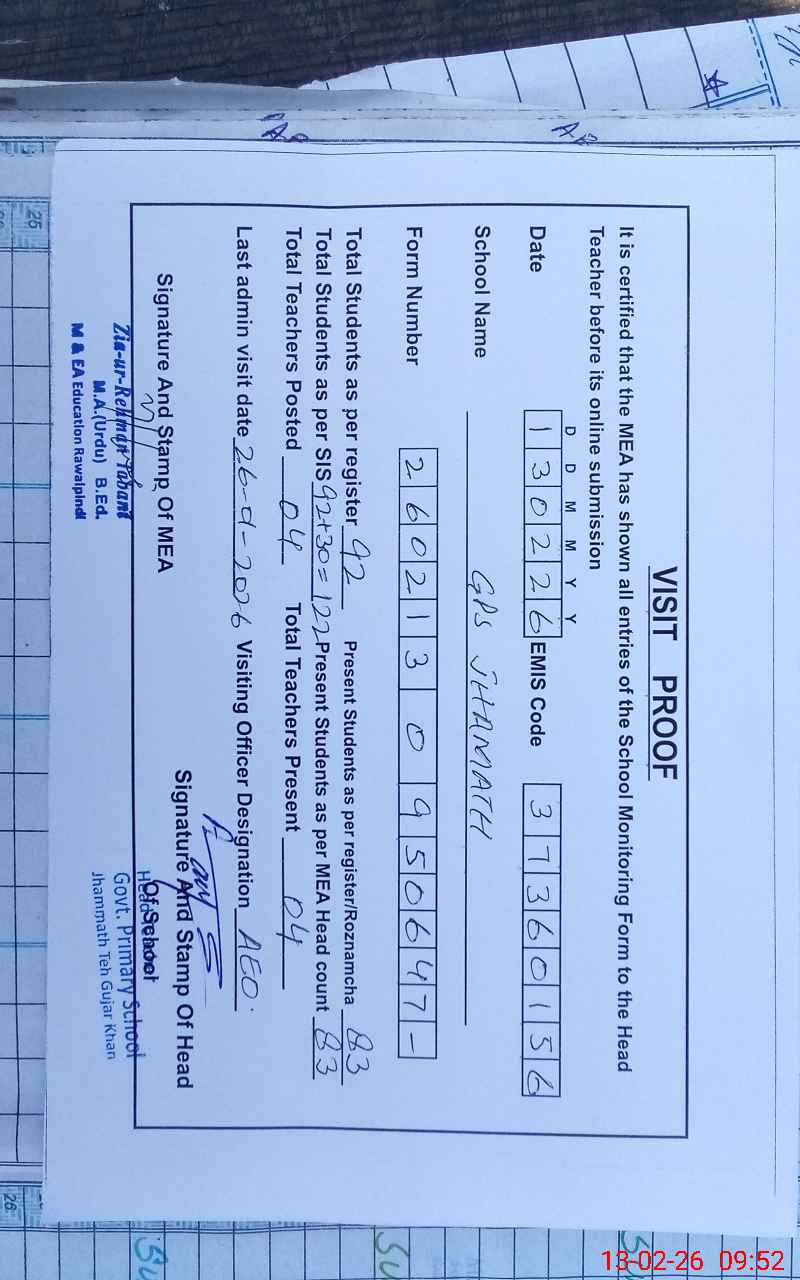 VISIT PROOF
It is certified that the MEA has shown all entries of the School Monitoring Form to the Head
Teacher before its online submission
D D M M Y Y
Date 1 3 0 2 2 6 EMIS Code 3 7 3 6 0 1 5 6
School Name GPS JHAMATH
Form Number 2 6 0 2 1 3 0 9 5 0 6 4 7 -
Total Students as per register 92 Present Students as per register/Roznamcha 83
Total Students as per SIS 92+30=122 Present Students as per MEA Head count 83
Total Teachers Posted 04 Total Teachers Present 04
Last admin visit date 26-9-2026 Visiting Officer Designation AEO.
Signature And Stamp Of MEA
Signature And Stamp Of Head
Of School
Zia-ur-Rehman
M.A.(Urdu) B.Ed.
M & EA Education Rawalpindi
Govt. Primary School
Jhammath Teh Gujar Khan
25
26
13-02-26 09:52